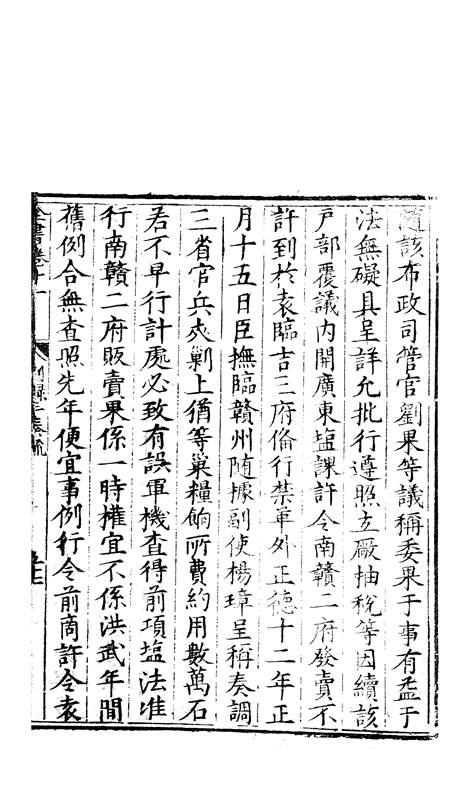 隨該布政司管官劉果等議稱委果于事有益于
法無礙具呈詳允批行遵照立厰抽稅等因續該
戶部覆議内開廣東塩課許令南贛二府發賣不
許到於袁臨吉三府俻行禁革外正德十二年正
月十五日臣撫臨贛州随據副使楊璋呈稱奏調
三省官兵夾剿上猶等巢糧餉所費約用數萬石
若不早行計處必致有誤軍機查得前項塩法准
行南贛二府販賣果係一時權宜不係洪武年間
舊例合無查照先年便宜事例行令前商許令袁
全書卷十一 別録三奏疏